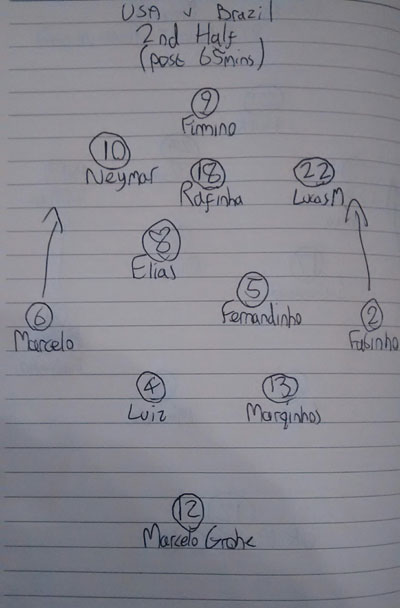 USA v Brazil
2nd Half
(post 65mins)
9
Fimino
10
Neymar
18
Rafinha
22
Lucas M
8
Elias
5
Fernandinho
6
Marcelo
2
Fabinho
4
Luiz
13
Marqinhos
12
Marcelo Grohe